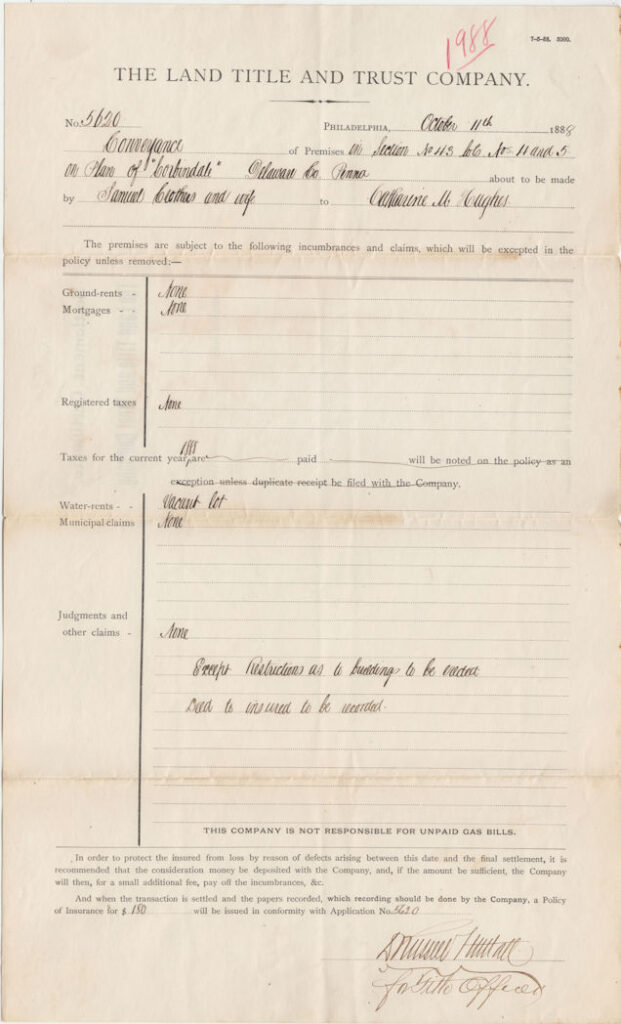 1988
7-5-88. 5000.
THE LAND TITLE AND TRUST COMPANY.
No. 5620 PHILADELPHIA, October 11th 1888
Conveyance of Premises on Section No 43 Nos 4 and 5
on Plan of "Corbindale" Delaware Co. Penna about to be made
by Samuel and wife to Catharine M. Hughes
The premises are subject to the following incumbrances and claims, which will be excepted in the
policy unless removed:—
Ground-rents - None
Mortgages - - None
Registered taxes None
1888
Taxes for the current year, are paid will be noted on the policy as an
exception unless duplicate receipt be filed with the Company.
Water-rents - - Vacant lot
Municipal claims None
Judgments and
other claims - None
Except Restrictions as to buildings to be erected
Deed to insured to be recorded.
THIS COMPANY IS NOT RESPONSIBLE FOR UNPAID GAS BILLS.
In order to protect the insured from loss by reason of defects arising between this date and the final settlement, it is
recommended that the consideration money be deposited with the Company, and, if the amount be sufficient, the Company
will then, for a small additional fee, pay off the incumbrances, &c.
And when the transaction is settled and the papers recorded, which recording should be done by the Company, a Policy
of Insurance for $ 180 will be issued in conformity with Application No. 5620
for Title Officer